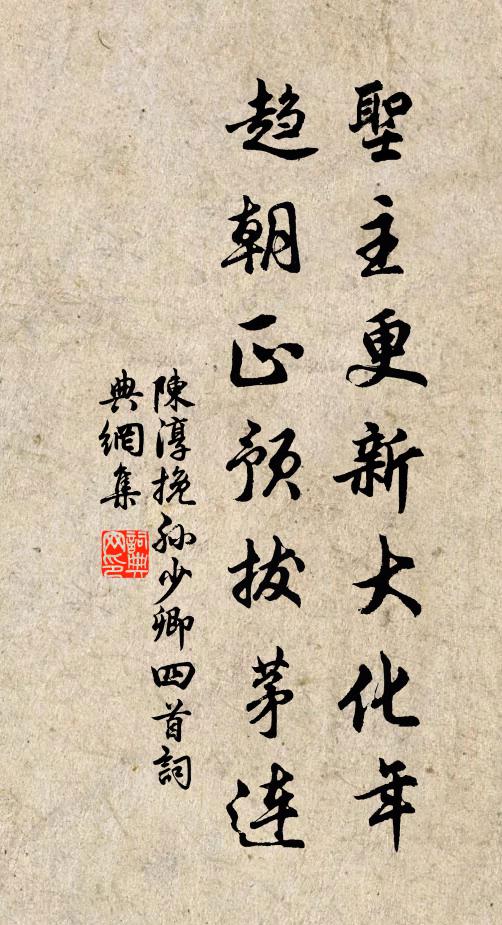 聖主更新大化年
趨朝正預拔茅連
陳淳挽孫少卿四首詞
典網集
詞典
网印